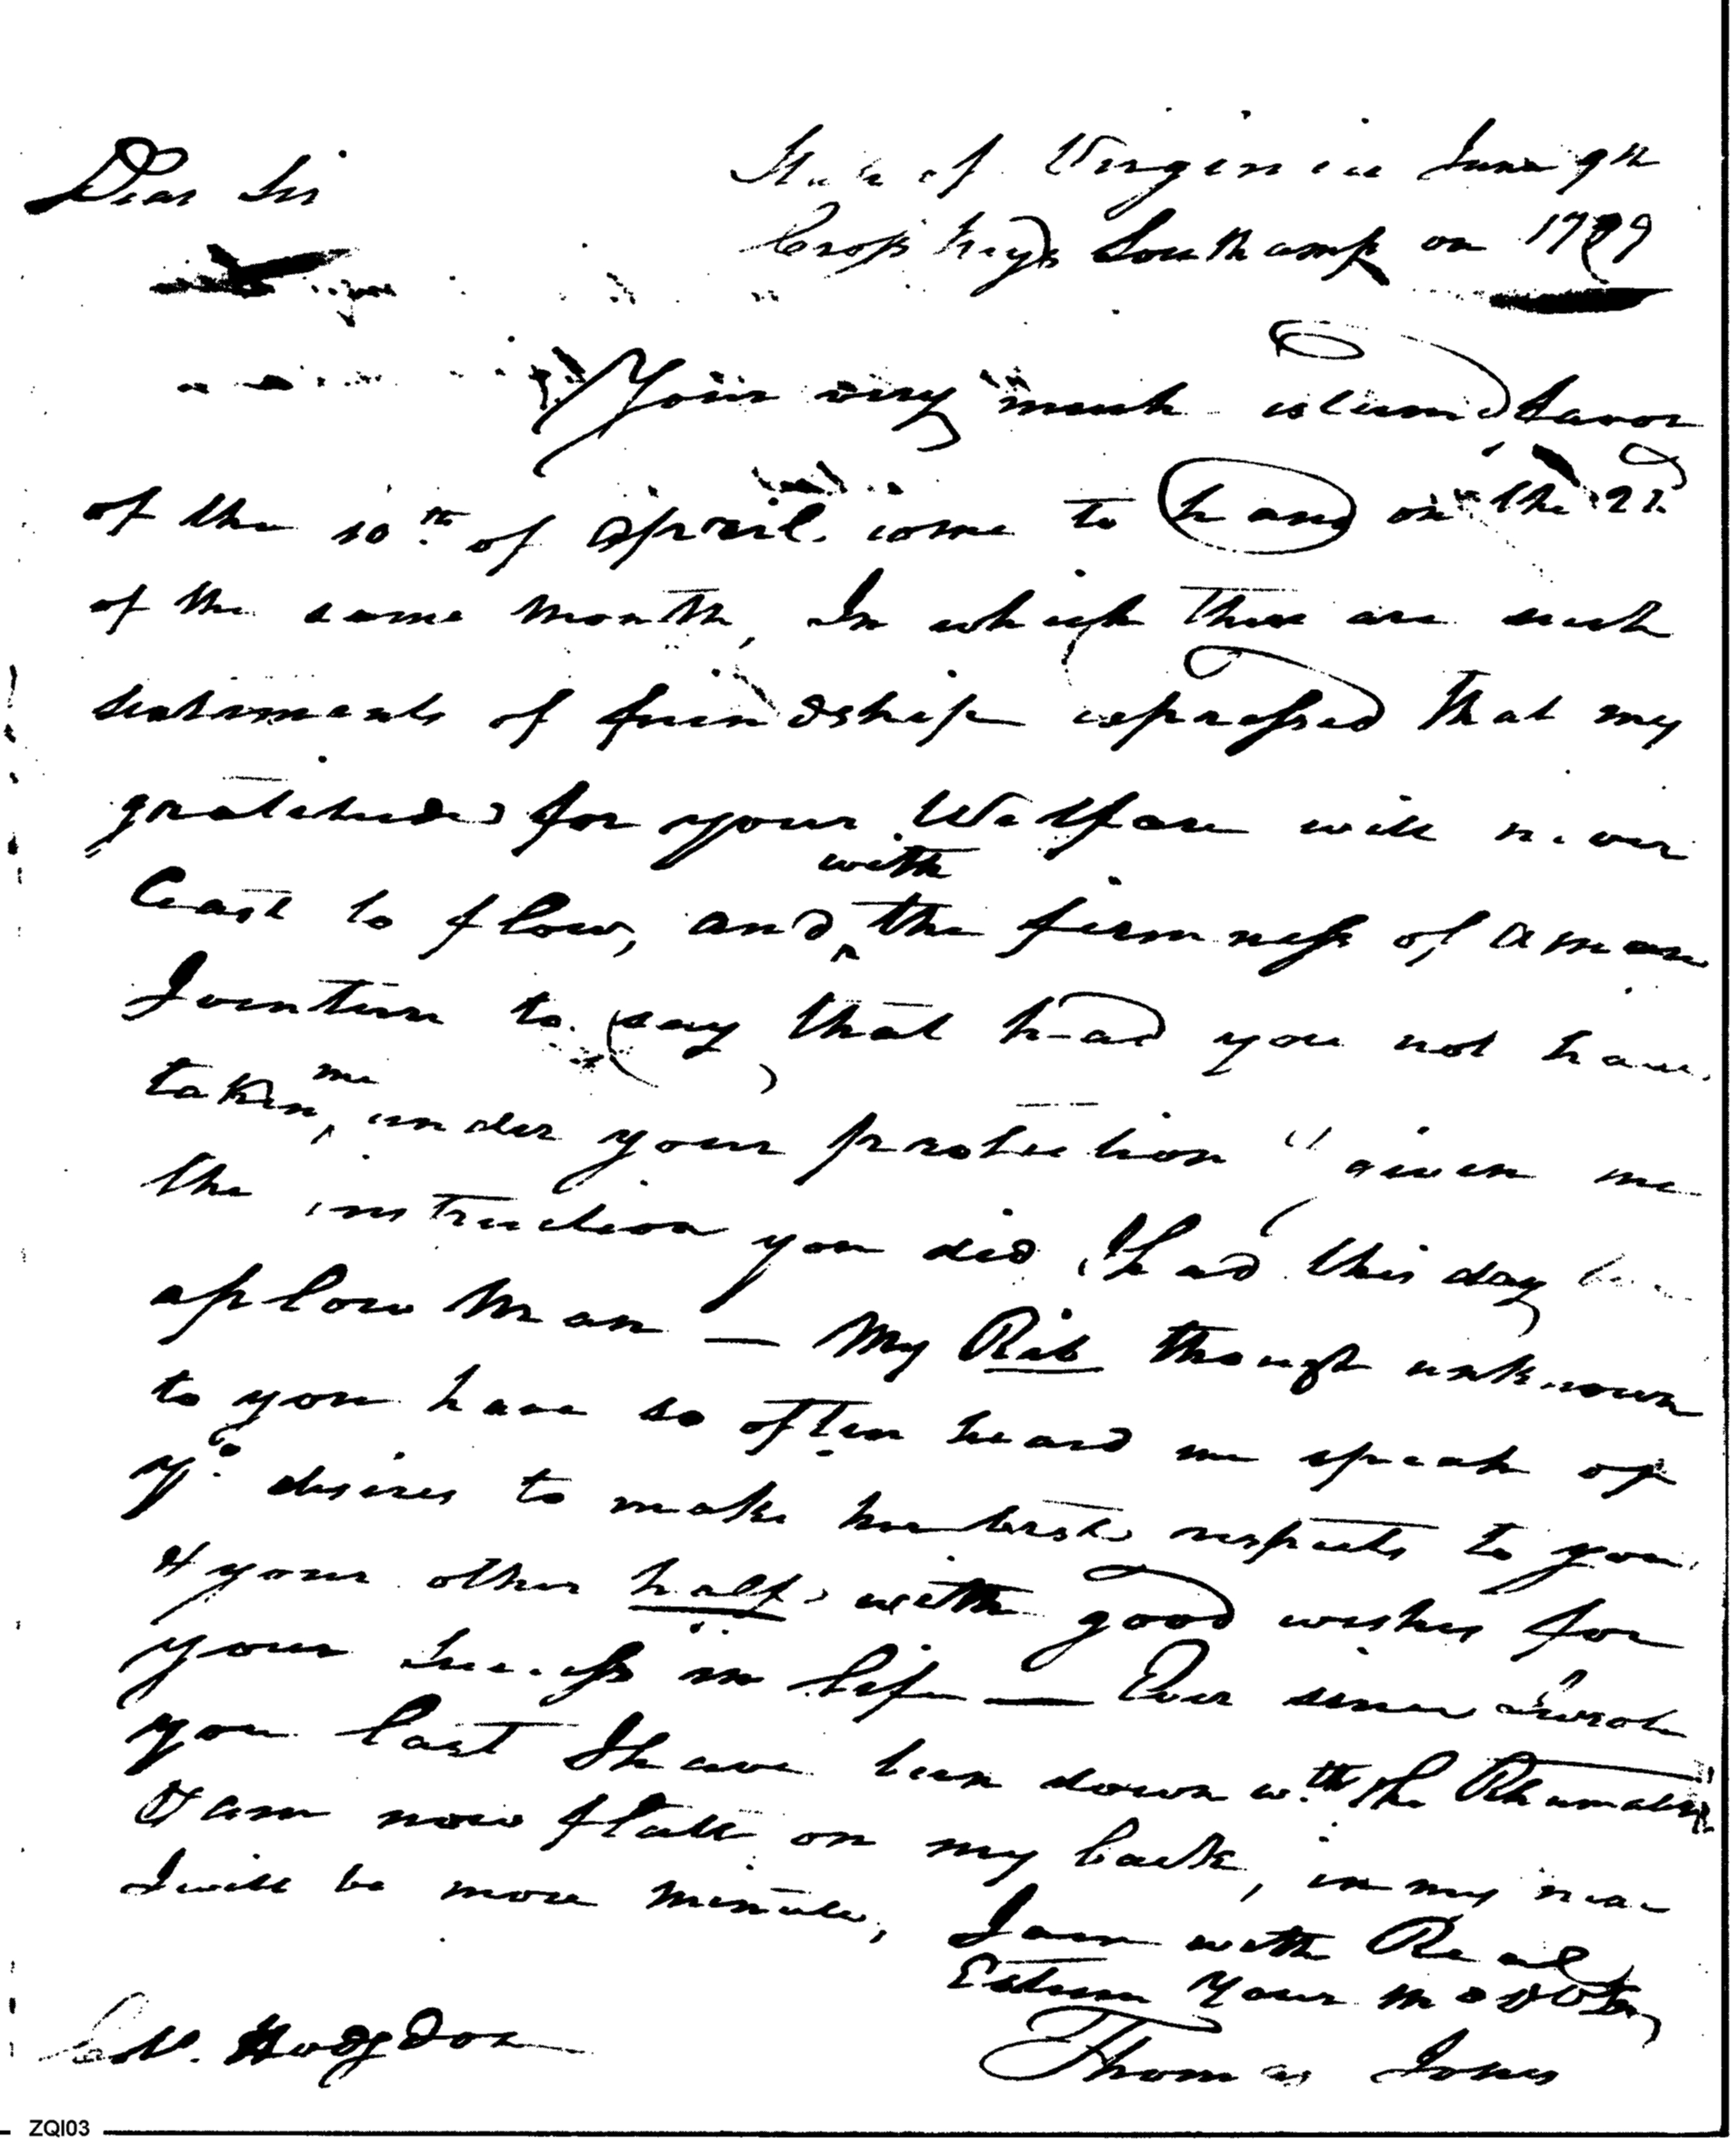 Dear Sir
State of Virginia June 9th
Cross keys Southampton 1789
Your very much esteemed favor
of the 10th of April come to hand on the 22d
of the same month, In which there are such
sentiments of friendship expressed that my
gratitude for your Welfare will never
Cease to flow, and with the firmness of a man
I venture to say, that had you not have
taken me under your protection & given me
the instruction you did, I had this day
a plow man — My Rib though unknown
to you have so often heard me speak of
yo desires to make her best respects to you
& your other half, with good wishes for
your Success in life — Ever since I wrote
you last I have been down wth the
& am now flatt on my back, in my
I will be more minute,
I am with Real
Esteem your mo Obt
Thomas Jones
Hodgdon
ZQI03